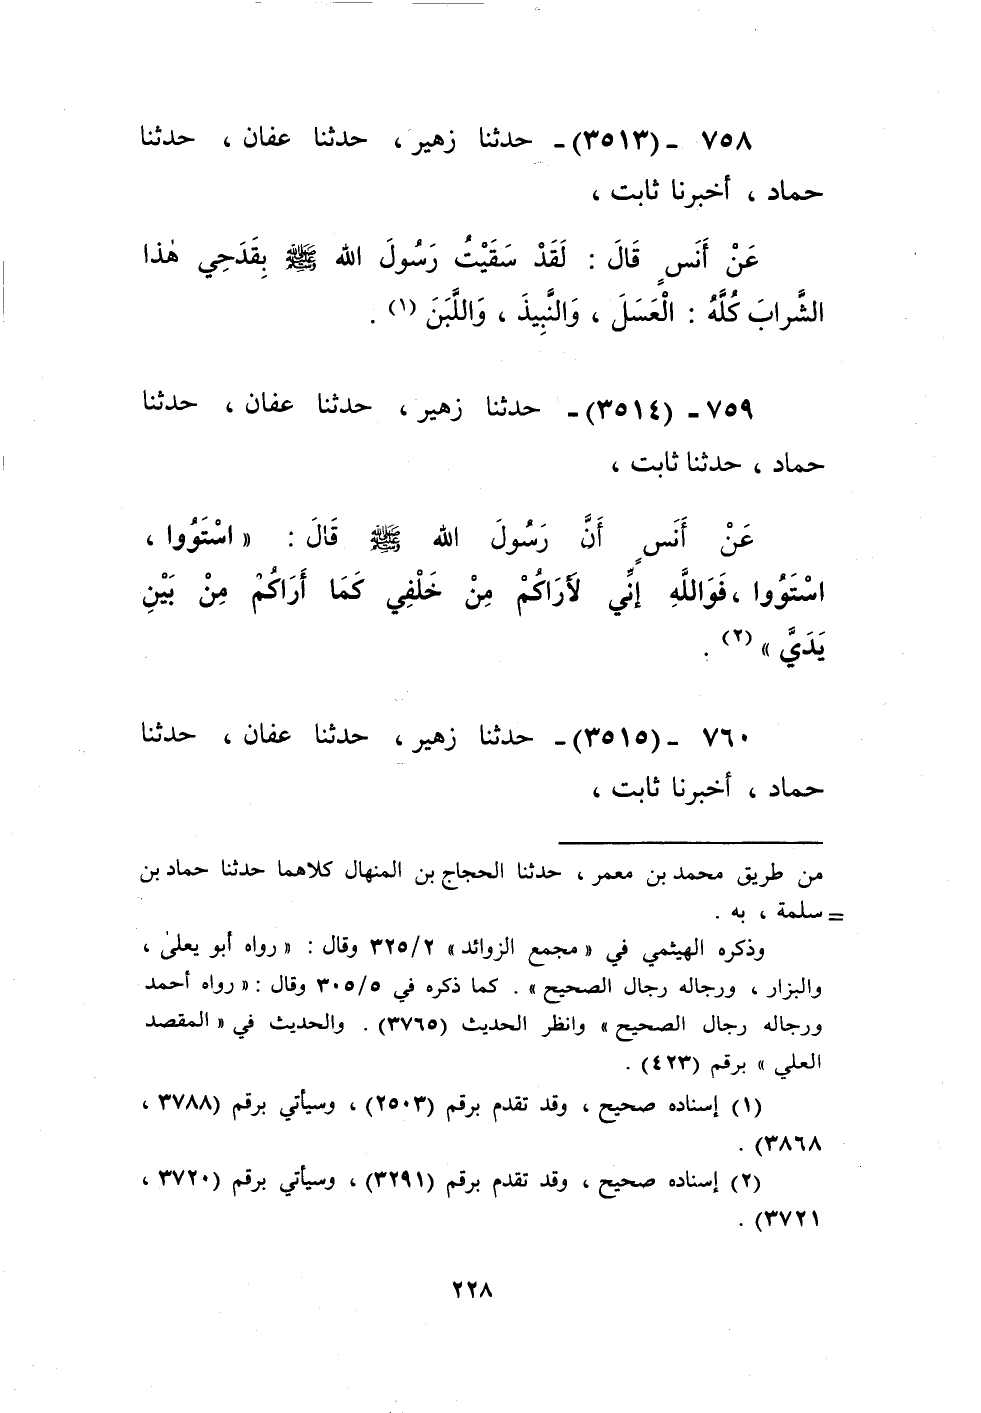 ٧٥٨ ـ (٣٥١٣)ـ حدثنا زهير ، حدثنا عفان ، حدثنا
حماد ، أخبرنا ثابت ،
عَنْ أَنَسٍ قَالَ : لَقَدْ سَقَيْتُ رَسُولَ الله ﷺ بِقَدَحِي هٰذا
الشَّرابَ كُلَّهُ : الْعَسَلَ ، وَالنَّبِيذَ ، وَاللَّبَنَ (١) .
٧٥٩ ـ (٣٥١٤)ـ حدثنا زهير ، حدثنا عفان ، حدثنا
حماد ، حدثنا ثابت ،
عَنْ أَنَسٍ أَنَّ رَسُولَ الله ﷺ قَالَ : « اسْتَوُوا ،
اسْتَوُوا ، فَوَاللَّهِ إِنِّي لَأَرَاكُمْ مِنْ خَلْفِي كَمَا أَرَاكُمْ مِنْ بَيْنِ
يَدَيَّ » (٢) .
٧٦٠ ـ (٣٥١٥)ـ حدثنا زهير ، حدثنا عفان ، حدثنا
حماد ، أخبرنا ثابت ،
من طريق محمد بن معمر ، حدثنا الحجاج بن المنهال كلاهما حدثنا حماد بن
= سلمة ، به .
وذكره الهيثمي في « مجمع الزوائد » ٣٢٥/٢ وقال : « رواه أبو يعلىٰ ،
والبزار ، ورجاله رجال الصحيح » . كما ذكره في ٣٠٥/٥ وقال : « رواه أحمد
ورجاله رجال الصحيح » وانظر الحديث (٣٧٦٥) . والحديث في « المقصد
العلي » برقم (٤٢٣) .
(١) إسناده صحيح ، وقد تقدم برقم (٢٥٠٣) ، وسيأتي برقم (٣٧٨٨ ،
٣٨٦٨) .
(٢) إسناده صحيح ، وقد تقدم برقم (٣٢٩١) ، وسيأتي برقم (٣٧٢٠ ،
٣٧٢١) .
٢٢٨